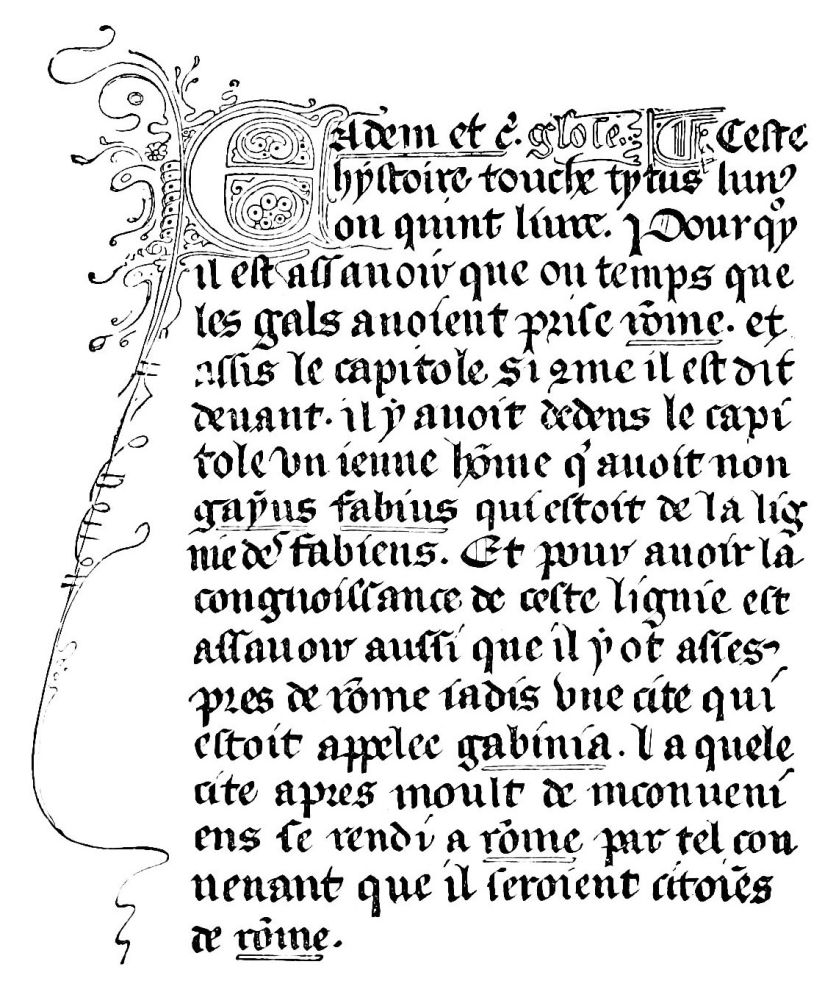 Eadem et c̃. glose. Ceste
hystoire touche tytus liuiꝰ
ou quint liure. Pour qͦy
il est assauoir que ou temps que
les gals auoient prise rõme. et
assis le capitole si ꝯme il est dit
deuant. il ẏ auoit dedens le capi
tole vn ieune hõme qͥ auoit non
gaẏus fabius qui estoit de la lig
nie des fabiens. Et pour auoir la
congnoissance de ceste lignie est
assauoir aussi que il ẏ ot asses
pres de rõme iadis vne cite qui
estoit appelee gabinia. la quele
cite apres moult de inconueni
ens se rendi a rõme par tel con
uenant que il seroient citoiẽs
de rõme.